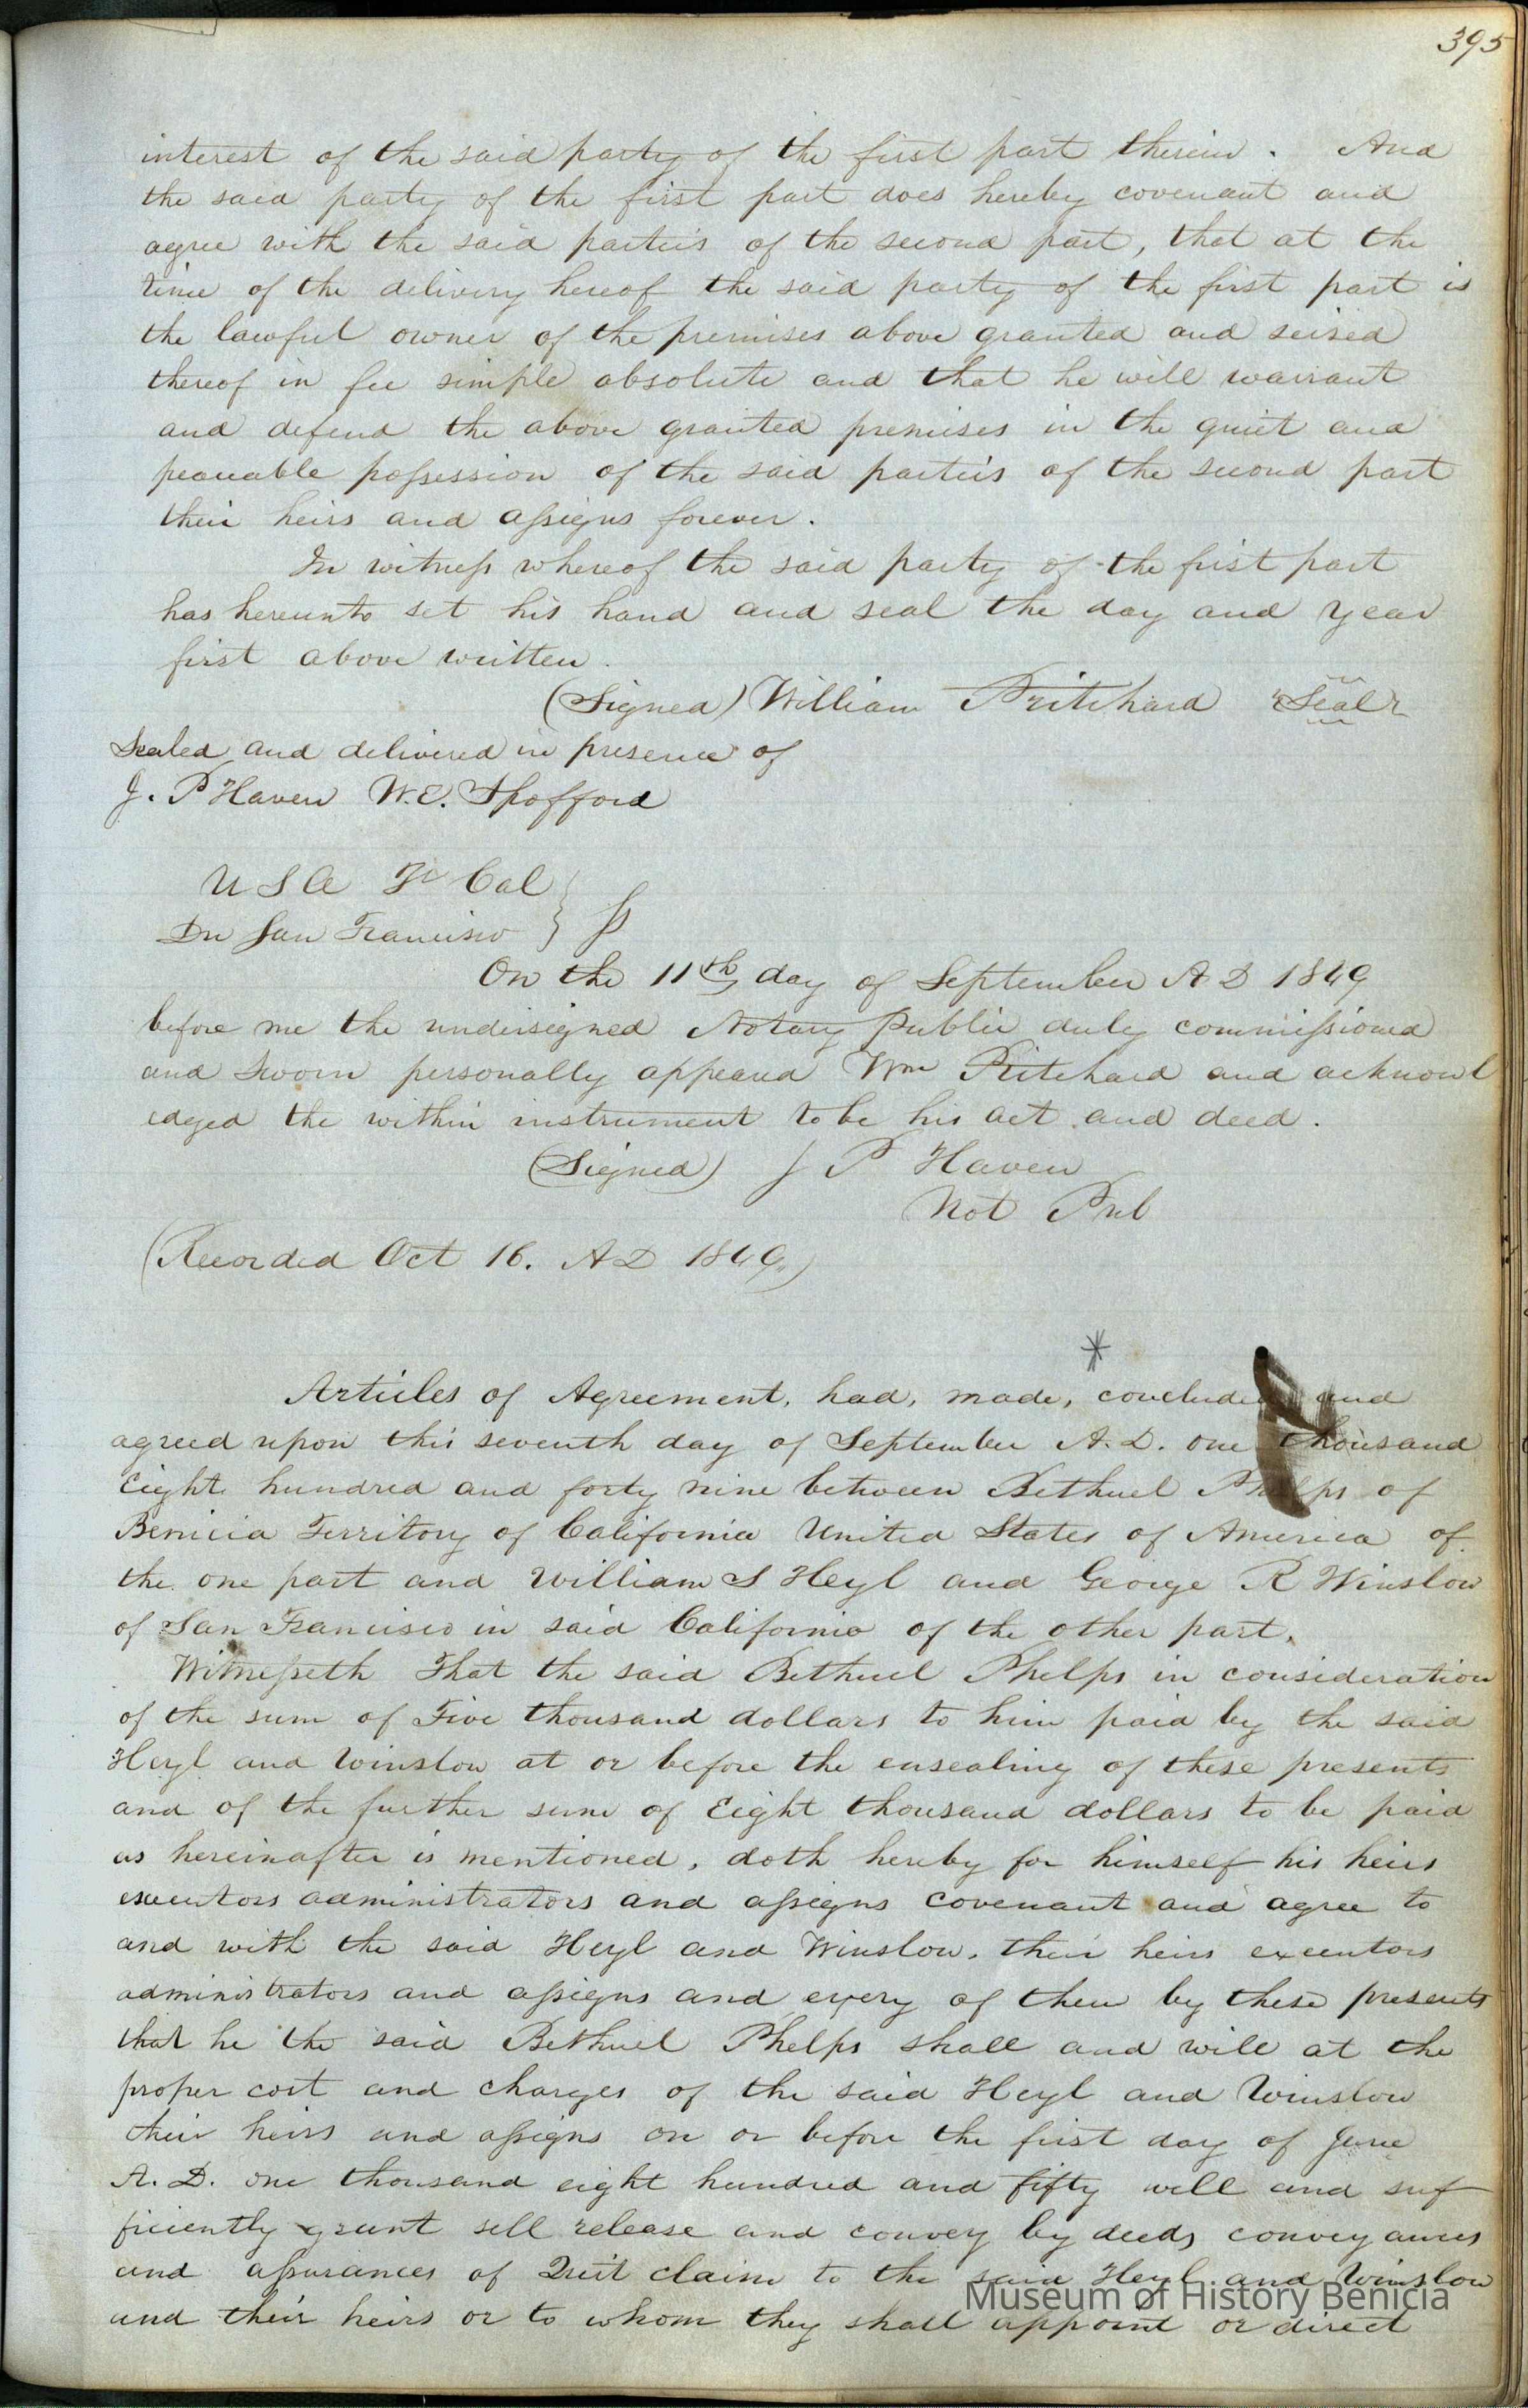 395
interest of the said party of the first part therein. And
the said party of the first part does hereby covenant and
agree with the said parties of the second part, that at the
time of the delivery hereof the said party of the first part is
the lawful owner of the premises above granted and seised
thereof in fee simple absolute and that he will warrant
and defend the above granted premises in the quiet and
peaceable possession of the said parties of the second part
their heirs and assigns forever.
In witness whereof the said party of the first part
has hereunto set his hand and seal the day and year
first above written.
(Signed) William Pritchard Seal
Sealed and delivered in presence of
J. P Haven W. E. Spofford
U S A Tc Cal
Du San Francisco } ss
On the 11th day of September A D 1849
before me the undersigned Notary Public duly commissioned
and sworn personally appeared Wm Pritchard and acknowl
edged the within instrument to be his act and deed.
(Signed) J P Haven
Not Pub
(Recorded Oct 16. A D 1849.)
*
Articles of Agreement, had, made, concluded and
agreed upon this seventh day of September A. D. one thousand
Eight hundred and forty nine between Bethuel Phelps of
Benicia Territory of California United States of America of
the one part and William S Heyl and George R Winslow
of San Francisco in said California of the other part.
Witnesseth That the said Bethuel Phelps in consideration
of the sum of Five thousand dollars to him paid by the said
Heyl and Winslow at or before the ensealing of these presents
and of the further sum of Eight thousand dollars to be paid
as hereinafter is mentioned, doth hereby for himself his heirs
executors administrators and assigns covenant and agree to
and with the said Heyl and Winslow, their heirs executors
administrators and assigns and every of them by these presents
that he the said Bethuel Phelps shall and will at the
proper cost and charges of the said Heyl and Winslow
their heirs and assigns on or before the first day of June
A. D. one thousand eight hundred and fifty well and suf
ficiently grant sell release and convey by deeds conveyances
and assurances of Quit claim to the said Heyl and Winslow
and their heirs or to whom they shall appoint or direct
Museum of History Benicia